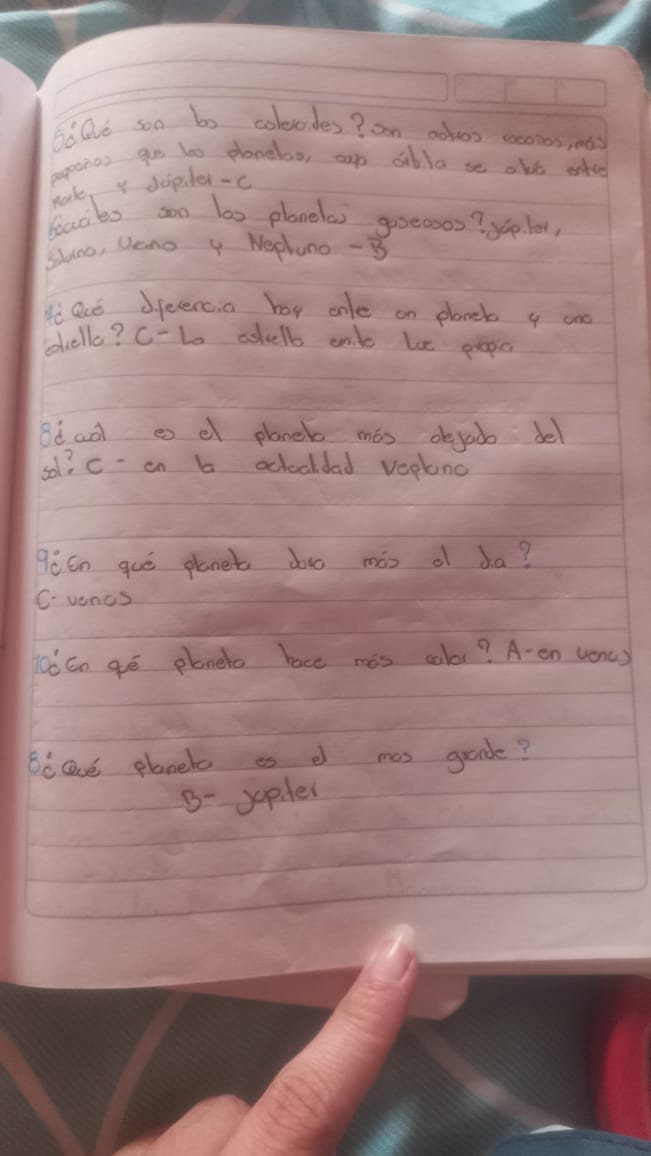 5¿Qué son los asteroides? son astros rocosos, más
pequeños que los planetas, cuya órbita se sitúa entre
Marte y Júpiter-C
6¿cuáles son los planetas gaseosos? Júpiter,
Saturno, Urano y Neptuno -B
7¿Qué diferencia hay entre un planeta y una
estrella? C-La estrella emite luz propia
8¿cuál es el planeta más alejado del
sol? C- en la actualidad Neptuno
9¿En qué planeta dura más el día?
C-venus
10¿En qué planeta hace más calor? A-en venus
8¿Qué planeta es el mas grande?
B- Júpiter